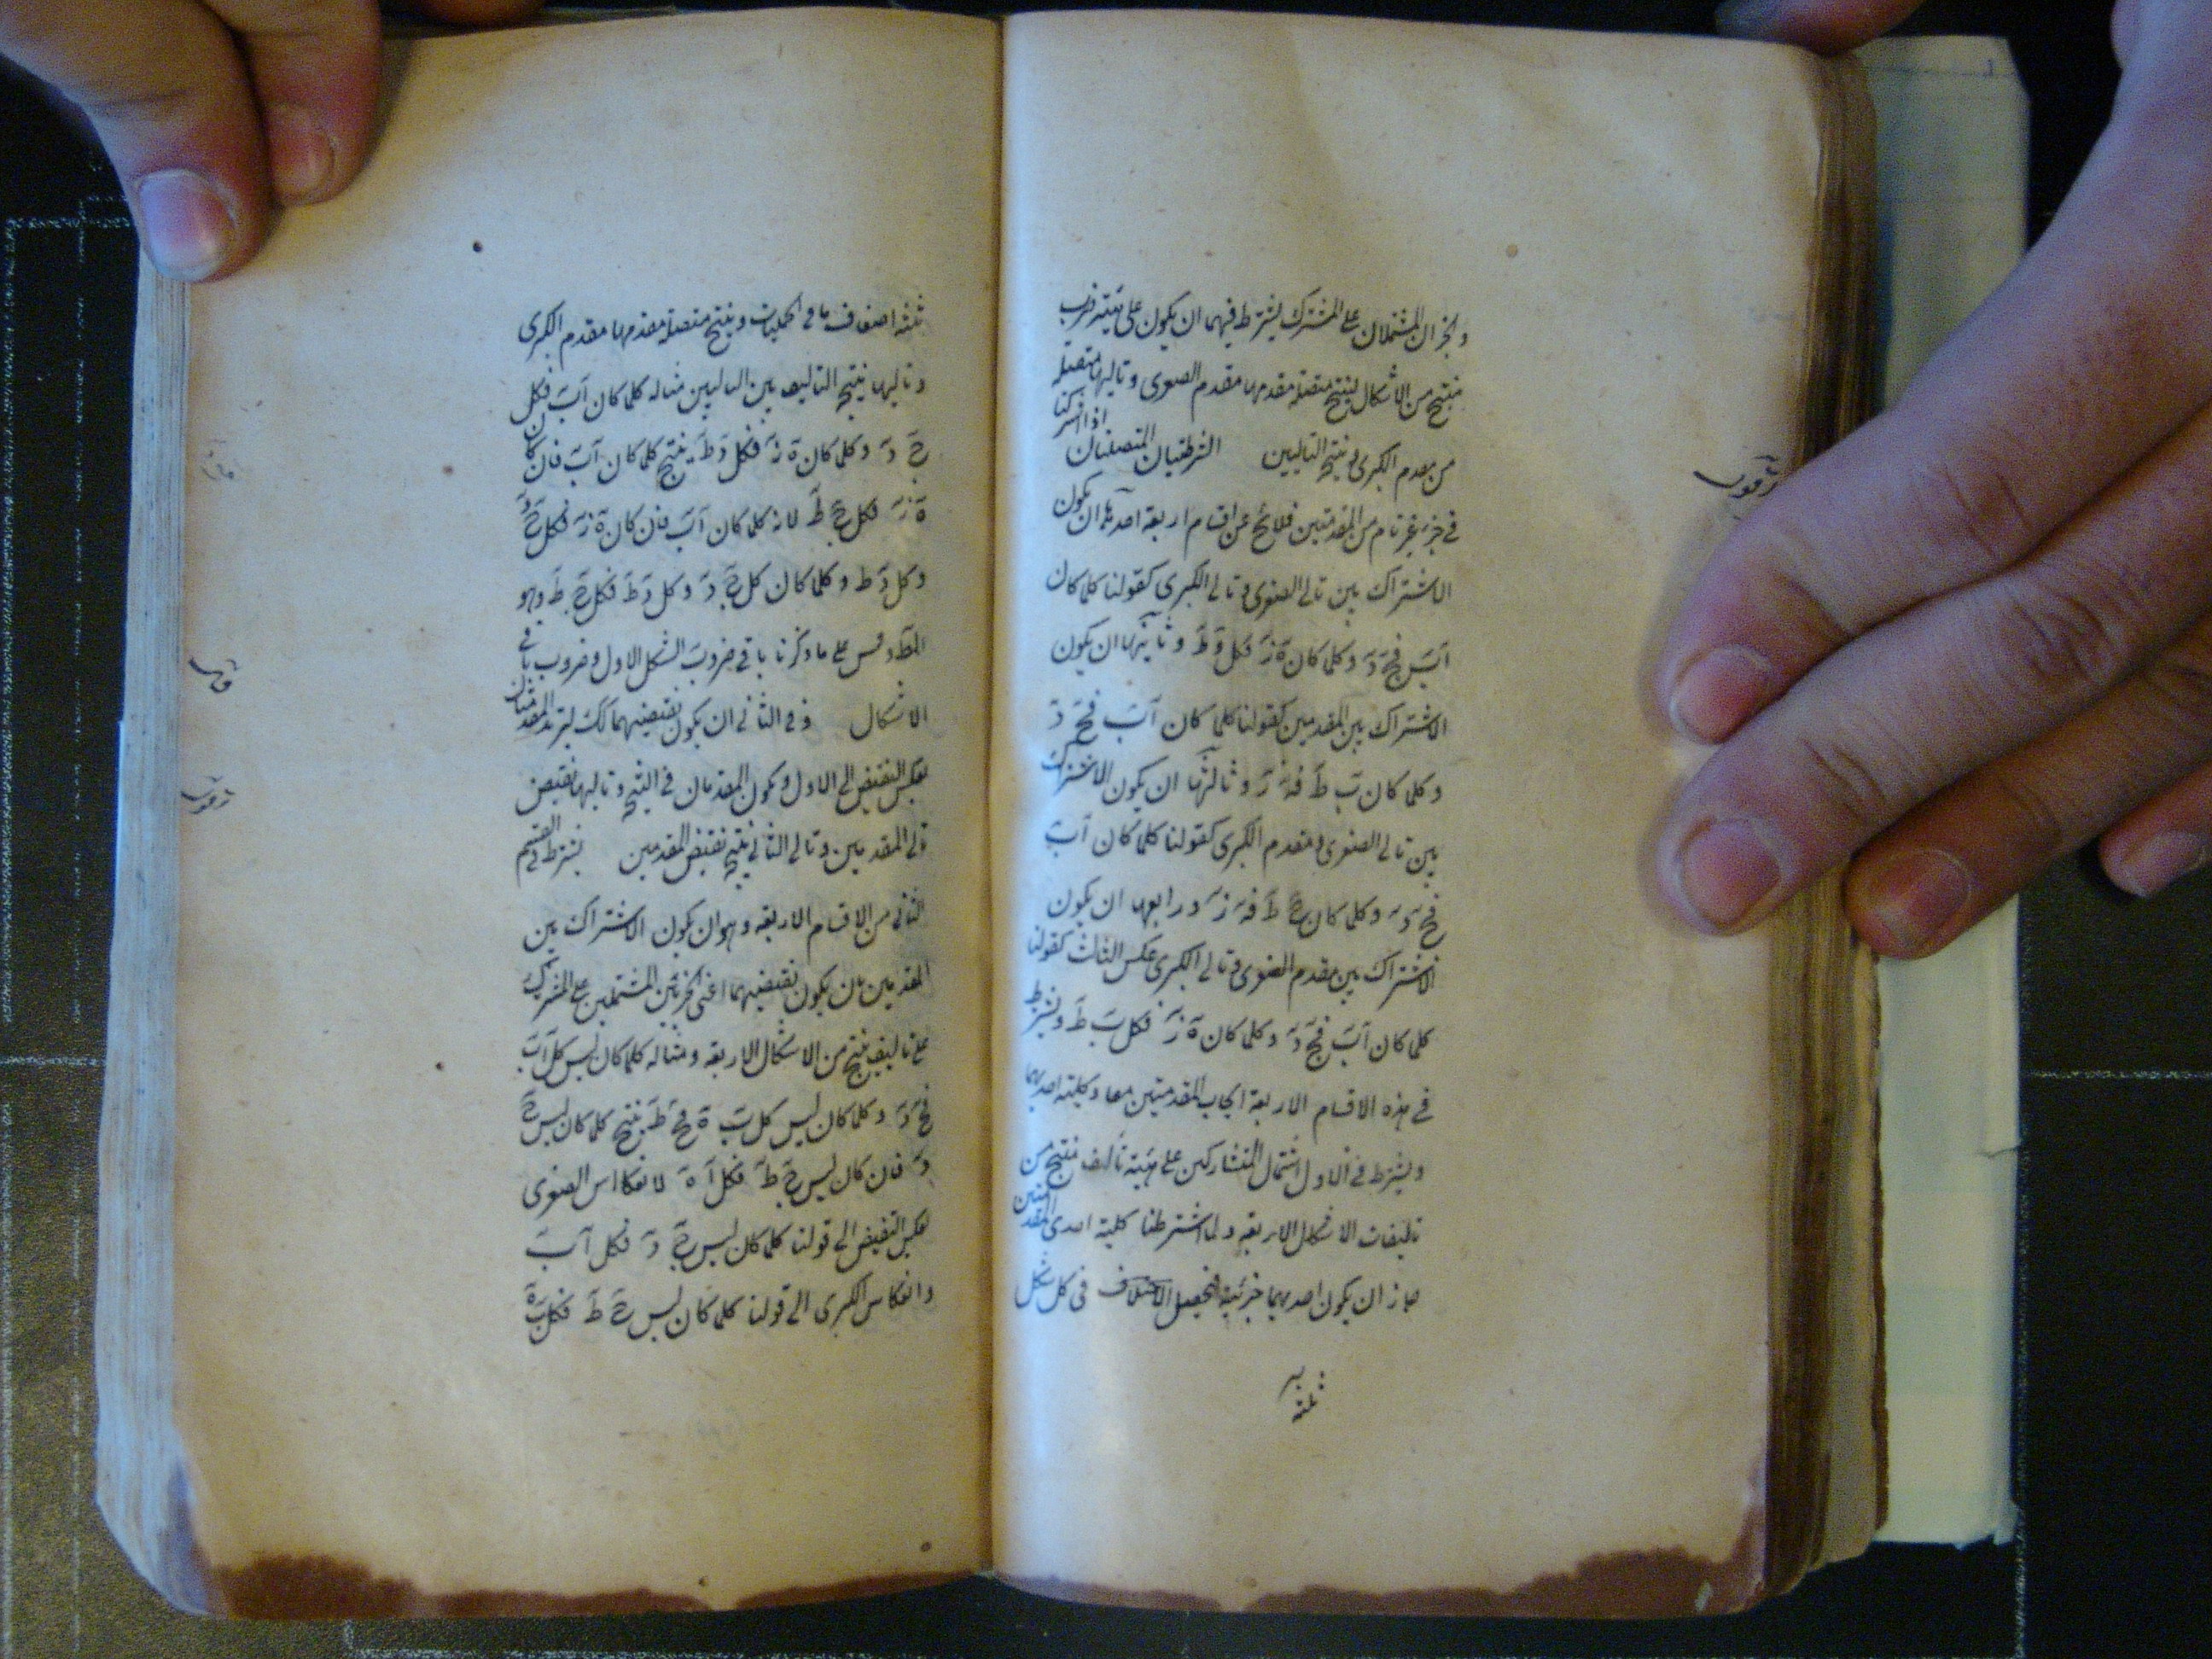 والجزان المشتملان على المشترك يشترط فيهما ان يكون على هيئة ضرب
منتج من الاشكال لينتج متصلة مقدمها مقدم الصغرى وتاليها متصلة
من مقدم الكبرى ونتيجة التاليين الشرطيتان المتصلتان اذا اشتركتا
في جزء غير تام من المقدمتين فلا يخ عن اقسام اربعة احدها ان يكون
الاشتراك بين تالى الصغرى وتالى الكبرى كقولنا كلما كان
اَبَ فجَ دَ وكلما كان هَ زَ فكل دَ طَ وثانيها ان يكون
الاشتراك بين المقدمين كقولنا كلما كان اَبَ فجَ دَ
وكلما كان بَ طَ فهَ زَ وثالثها ان يكون الاشتراك
بين تالى الصغرى ومقدم الكبرى كقولنا كلما كان اَبَ
فجَ دَ وكلما كان جَ طَ فهَ زَ ورابعها ان يكون
الاشتراك بين مقدم الصغرى وتالى الكبرى عكس الثالث كقولنا
كلما كان اَبَ فجَ دَ وكلما كان هَ زَ فكل بَ طَ ويشترط
في هذه الاقسام الاربعة ايجاب المقدمتين معا وكلية احديهما
ويشترط في الاول اشتمال المتشاركين على هيئة تاليف منتج من
تاليفات الاشكال الاربعة ولما اشترطنا كلية احدى المقدمتين
جاز ان يكون احديهما جزئية فيحصل الاختلاف في كل شكل
ثلثة
ثلثة اضعاف ما في الحمليات وينتج متصلة مقدمها مقدم الكبرى
وتاليها نتيجة التاليف بين التاليين مثاله كلما كان اَبَ فكل
جَ دَ وكلما كان هَ زَ فكل دَ طَ ينتج كلما كان اَبَ فان كان
هَ زَ فكل جَ طَ لانه كلما كان اَبَ فان كان هَ زَ فكل جَ دَ
وكل دَ ط وكلما كان كل جَ دَ وكل دَ طَ فكل جَ طَ وهو
المط وقس على ما ذكرنا باقي ضروب الشكل الاول وضروب باقي
الاشكال وفي الثاني ان يكون نقيضيهما كك ليرتد المقدمتان
بعكس النقيض الى الاول ويكون المقدمان في النتيجة وتاليها نقيض
تالى المقدمين وتالى الثاني نتيجة نقيض المقدمين يشترط في القسم
الثاني من الاقسام الاربعة وهو ان يكون الاشتراك بين
المقدمين بان يكون نقيضيهما اعنى الجزئين المشتملين على المشترك
على تاليف منتج من الاشكال الاربعة ومثاله كلما كان ليس كل اَبَ
فجَ دَ وكلما كان ليس كل بَ هَ فجَ طَ ينتج كلما كان ليس جَ
دَ فان كان ليس جَ طَ فكل اَ هَ لانعكاس الصغرى
بعكس النقيض الى قولنا كلما كان ليس جَ دَ فكل اَبَ
وانعكاس الكبرى الى قولنا كلما كان ليس جَ طَ فكل بَ هَ